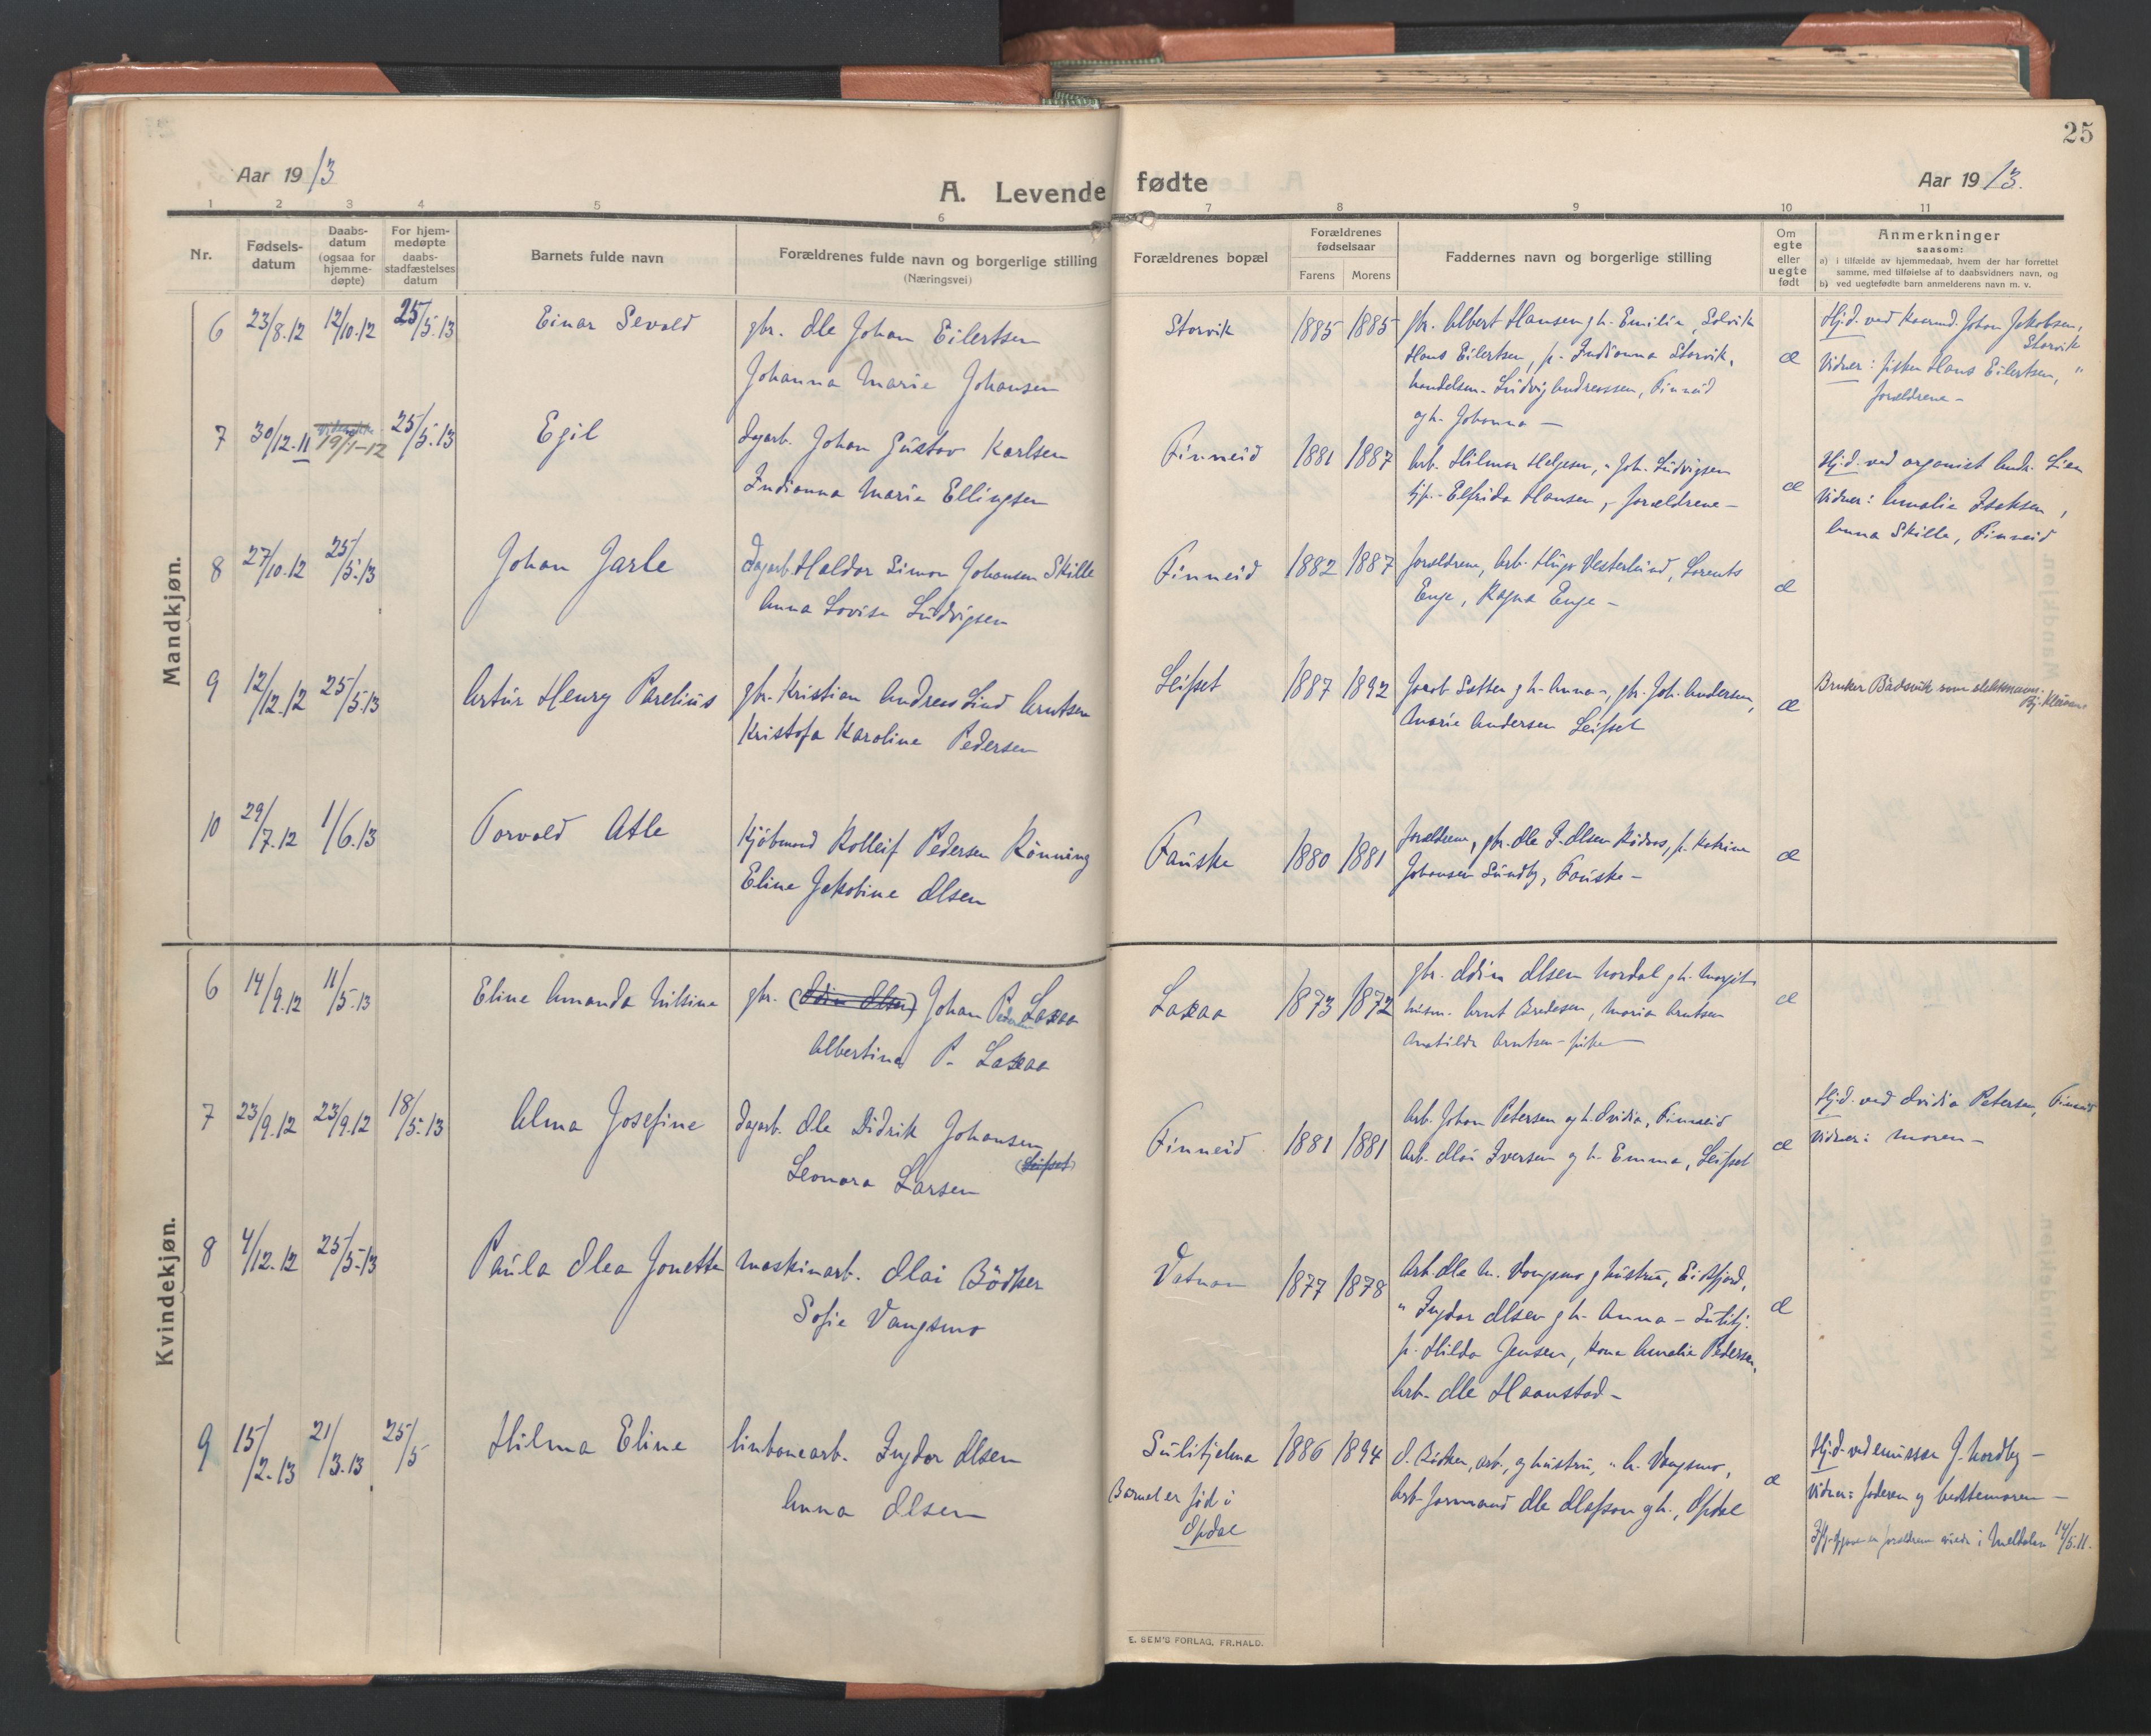 25
Aar 1913
A. Levende fødte
Aar 1913.
1 2 3 4 5 6 7 8 9 10 11
Nr.
Fødsels-
datum
Daabs-
datum
(ogsaa for
hjemme-
døpte)
For hjem-
medøpte
daabs-
stadfæstelses
datum
Barnets fulde navn
Forældrenes fulde navn og borgerlige stilling
(Næringsvei)
Forældrenes bopæl
Forældrenes
fødselsaar
Farens Morens
Faddernes navn og borgerlige stilling
Om
egte
eller
uegte
født
Anmerkninger
saasom:
a) i tilfælde av hjemmedaab, hvem der har forrettet
samme, med tilføielse af to daabsvidners navn, og
b) ved uegtefødte barn anmelderens navn m. v.
Mandkjøn.
6 23/8.12 12/10.12 25/5.13 Einar Sevald
gbr. Ole Johan Eilertsen
Johanna Marie Johansen
Storvik 1885 1885
gbr. Albert Hansen g h. Emilie, Solvik
Hans Eilertsen, p. Indianna Storvik,
handelsm. Ludvig Andreassen, Finneid
og h. Johanna —
æ
Hj.d. ved Johan Jakobsen,
Storvik
Vidner: fisker Hans Eilertsen, "
forældrene -
7 30/12.11 19/1-12 25/5.13 Egil
Dagarb. Johan Gustav Karlsen
Indianna Marie Ellingsen
Finneid 1881 1887
Arb. Hilmar Helgesen, " Joh. Ludvigsen
tjp. Elfrida Hansen, forældrene -
æ
Hj.d. ved organist Andr. Lien
Vidner: Amalie Isaksen,
Anna Skille, Finneid
8 27/10.12 25/5.13 Johan Jarle
Dagarb. Haldor Simon Johansen Skille
Anna Lovise Ludvigsen
Finneid 1882 1887
forældrene, Arb. Hugo Vesterlund, Lorents
Enge, Ragna Enge -
æ
9 12/12.12 25/5.13 Artur Henry Parelius
gbr. Kristian Andreas Lind Arntsen
Kristofa Karoline Pedersen
Leifset 1887 1892
Jacob Setten g h. Anna -, gbr. Joh. Andersen,
Marie Andersen Leifset
æ
Bruker Bådsvik som slektsnavn.
10 29/7.12 1/6.13 Torvald Atle
Kjöbmand Rolleif Pedersen Rönning
Eline Jakobine Olsen
Fauske 1880 1881
forældrene, gbr. Ole J. Olsen Rödaas, p. Katrine
Johansen Lundby, Fauske -
æ
Kvindekjøn.
6 14/9.12 11/5.13 Eline Amanda Nilsine
gbr. (Odin Olsen) Johan Pedersen Laxaa
Albertine P. Laxaa
Laxaa 1873 1872
gbr. Odin Olsen Nordal g h. Margit
husm. Arnt Bredesen, Maria Arntsen
Matilde Arntsen - pike
æ
7 23/9.12 23/9.12 18/5.13 Alma Josefine
Dagarb. Ole Didrik Johansen
(Leifset)
Leonora Larsen
Finneid 1881 1881
Arb. Johan Petersen og h. Ovidia, Finneid
Arb. Olai Iversen g h. Emma, Leifset
æ
Hj.d. ved Ovidia Petersen, Finneid
Vidner: Moren -
8 4/12.12 25/5.13 Paula Olea Jonette
Maskinarb. Olai Bödker
Sofie Vangsmo
Vatnan 1877 1878
Arb. Ole N. Vangsmo g hustru, Eidsfjord,
" Ingdor Olsen g h. Anna - Sulitj.
p. Hilda Jensen, Kone Amalie Pedersen,
Arb. Ole Haanstad -
æ
9 15/2.13 21/3.13 25/5 Hilma Eline
linbanearb. Ingdor Olsen
Anna Olsen
Sulitjelma 1886 1894
Barnet er föd i
Opdal
O. Bödker, arb., og hustru, " N. Vangsmo,
Arb. formand Ole Olafson g h., Opdal
æ
Hj.d. ved emissær J. Nordby -
Vidner: faderen og bestemoren -
forældrene viede i Meldalen 14/5.11.
E. SEM'S FORLAG, FR.HALD.